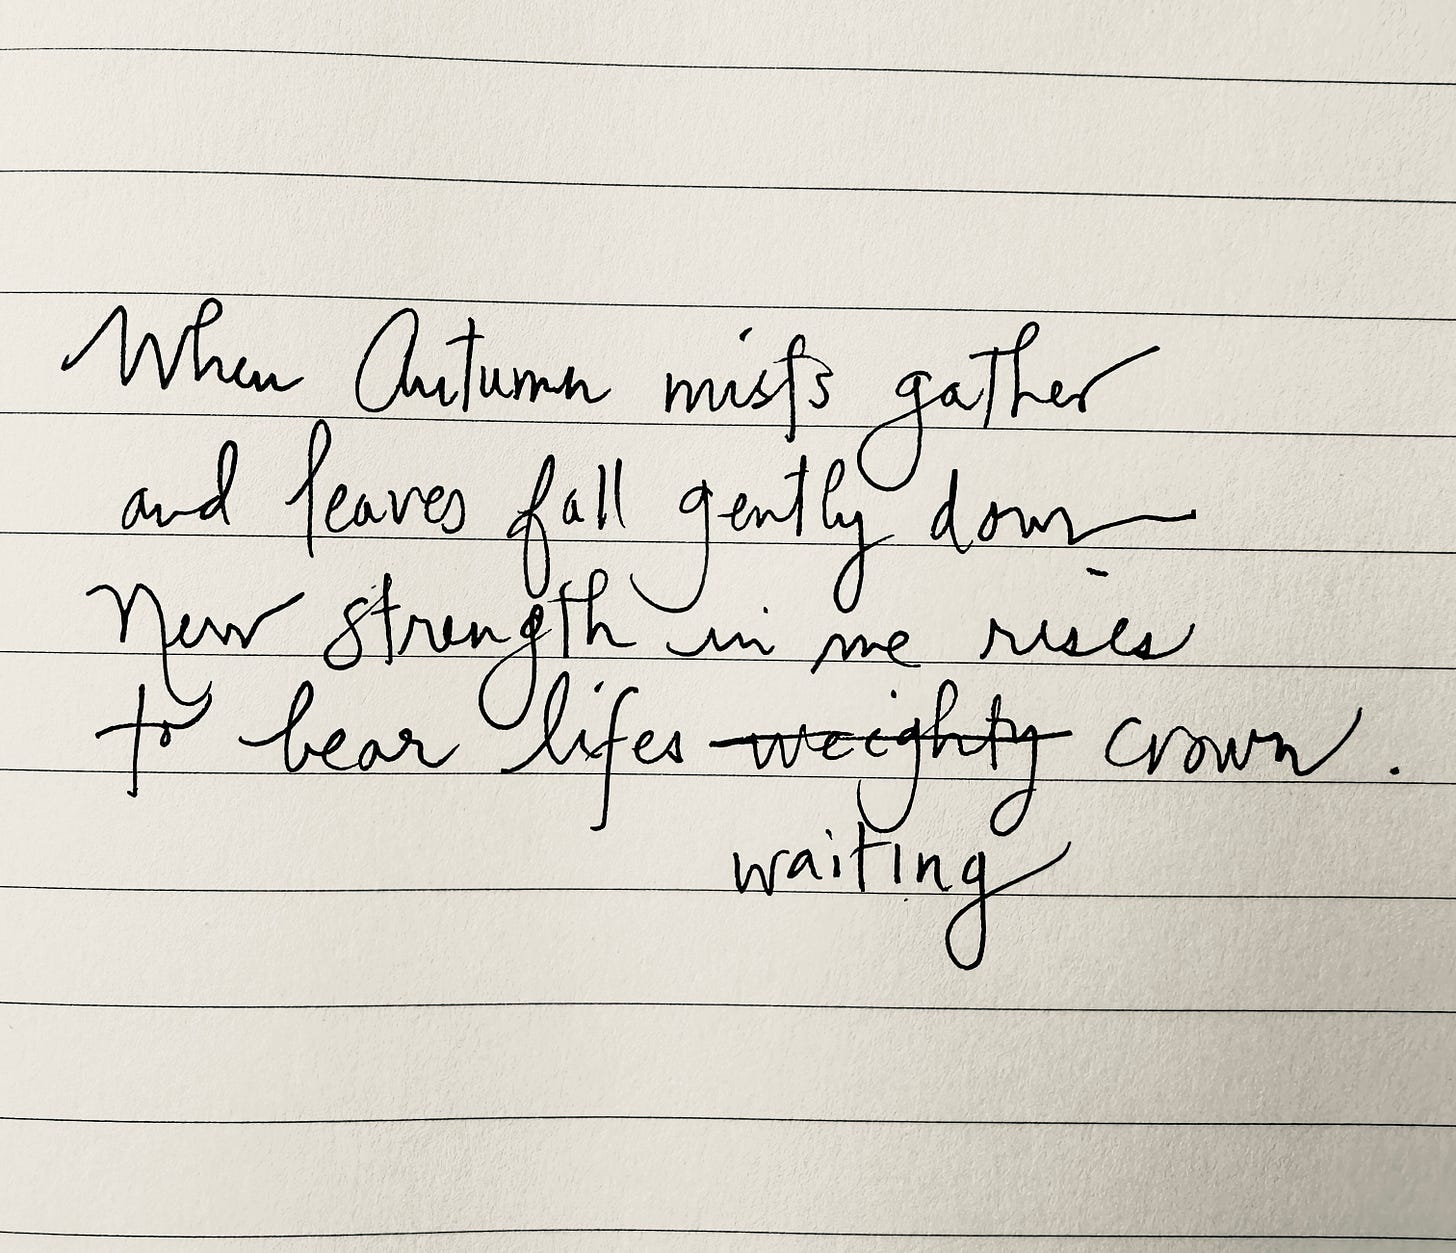 When Autumn mists gather
and leaves fall gently down
New strength in me rises
to bear lifes weighty crown.
waiting